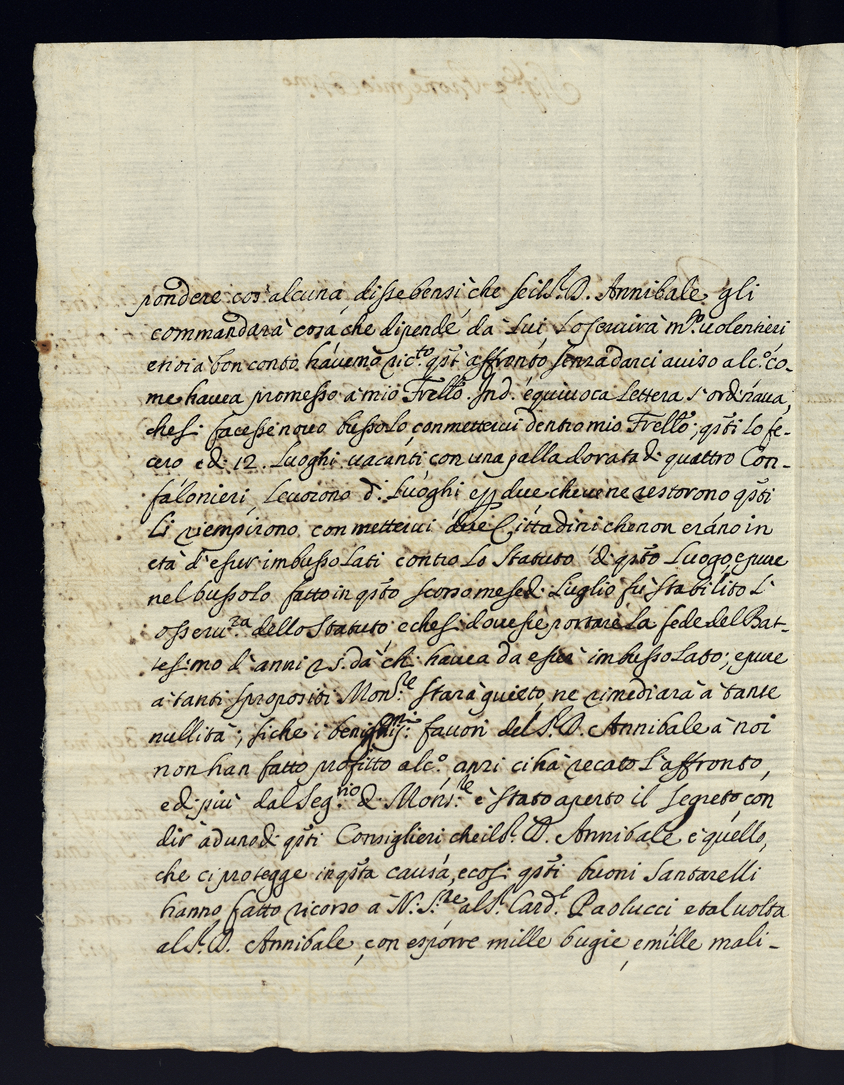 pondere cos' alcuna disse bensi che se il S.r D. Annibale gli
commandarà cosa che dipende da Lui Lo servirà m.to volentieri
e noi a bon conto havemo ric.to q.sto affronto senza darci aviso alc.o co-
me havea promesso a mio Frello. Ind. equivoca Lettera s' ordinava,
che si facesse novo bussolo con mettervi dentro mio Frello; q.sti lo fe-
cero e di 12. Luoghi vacanti con una palla dorata di quattro Con-
falonieri, Levorono d. Luoghi e p due che ve ne restorono q.sti
Li riempirono con mettervi due Cittadini che non erano in
età d' esser imbussolati contro Lo Statuto di q.sto Luogo, e pure
nel bussolo fatto in q.sto scorso mese di Luglio fù stabilito L'
osserv.za dello Statuto, e che si dovesse portare La fede del Bat-
tesimo d' anni 25. da chi havea da esser imbussolato; e pure
a tanti spropositi Mons.re starà quieto, ne rimediarà à tante
nullità; siche i benig.mi favori del S.r D. Annibale à noi
non han fatto profitto alc.o, anzi ci hà recato L' affronto,
e di più dal Seg.rio di Mons.re è stato aperto il segreto con
dir ad uno di q.sti Consiglieri che il S.r D. Annibale è quello,
che ci protegge in q.sta causa, e così q.sti buoni Santarelli
hanno fatto ricorso à N. S.re al S.r Card.l Paolucci e tal volta
al S.r D. Annibale, con esporre mille bugie, e mille mali-